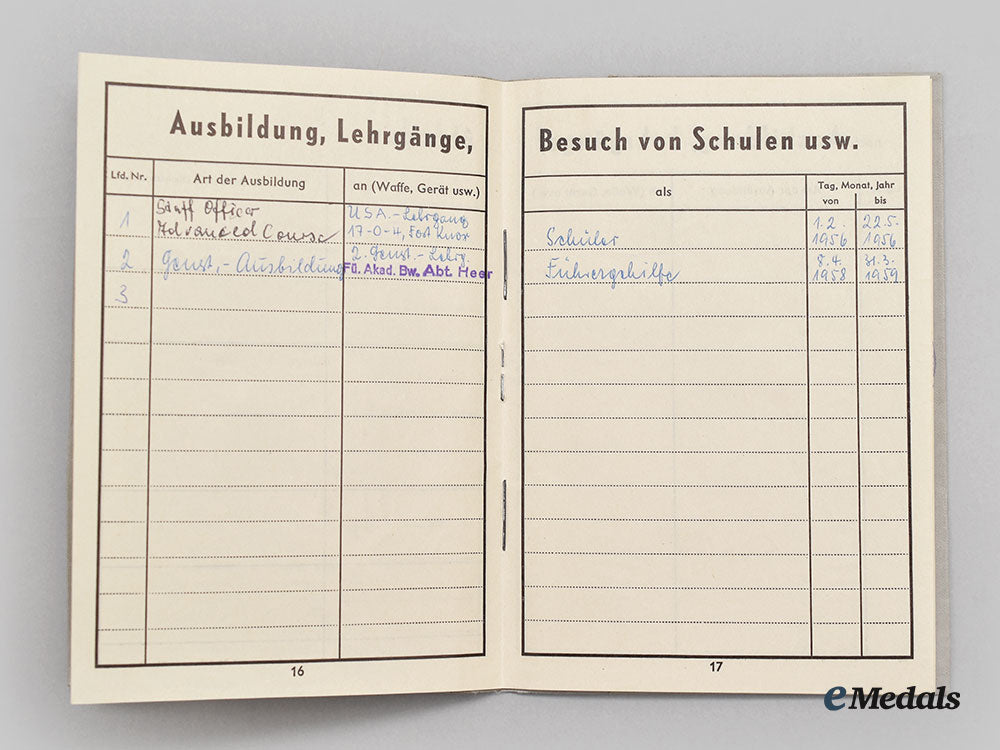 Ausbildung, Lehrgänge,
Lfd. Nr.
Art der Ausbildung
an (Waffe, Gerät usw.)
1
Staff Officer
Advanced Course
USA.-Lehrgang
17-O-4, Fort Knox
2
Genst.-Ausbildung
2. Genst.-Lehrg.
Fü. Akad. Bw. Abt. Heer
3
16
Besuch von Schulen usw.
als
Tag, Monat, Jahr
von
bis
Schüler
1.2.
1956
22.5.
1956
Führergehilfe
8.4.
1958
31.3.
1959
17
eMedals